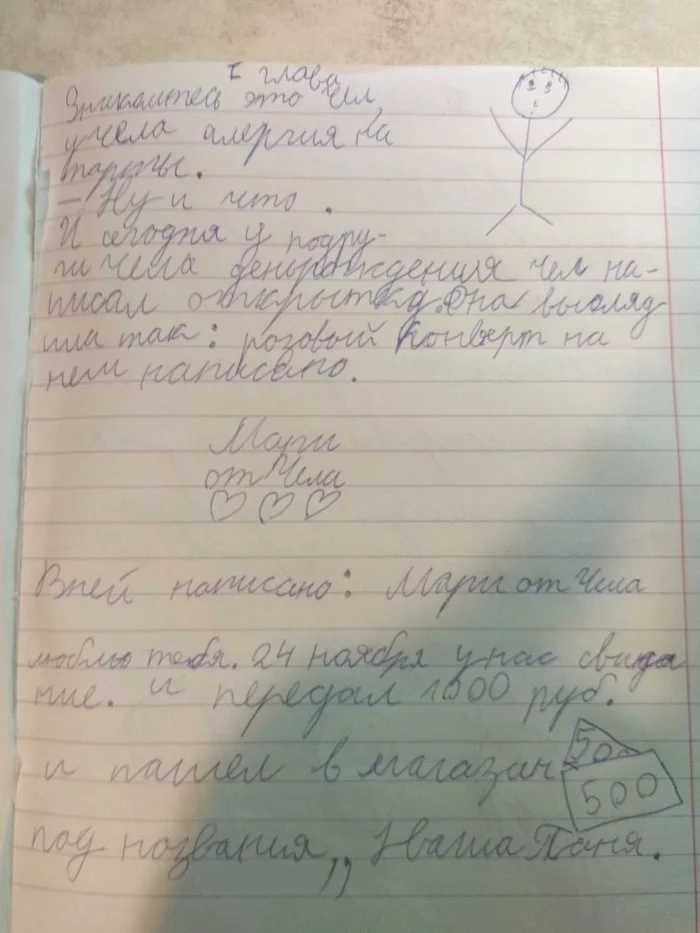 I глава
Знакомтесь это Чел,
у чела алергия на
торты.
— Ну и что .
И сегодня у подру-
ги Чела деньрождения чел на-
писал открытка. Она выгляд
ила так: розовый конверт на
нем написано.
Мари
от Чела
Вней написано: Мари от Чела
люблю тебя. 24 ноября у нас свида
ние. и передал 1000 руб.
и пашел в магазин
500
500
под названия ,, Наша Таня.